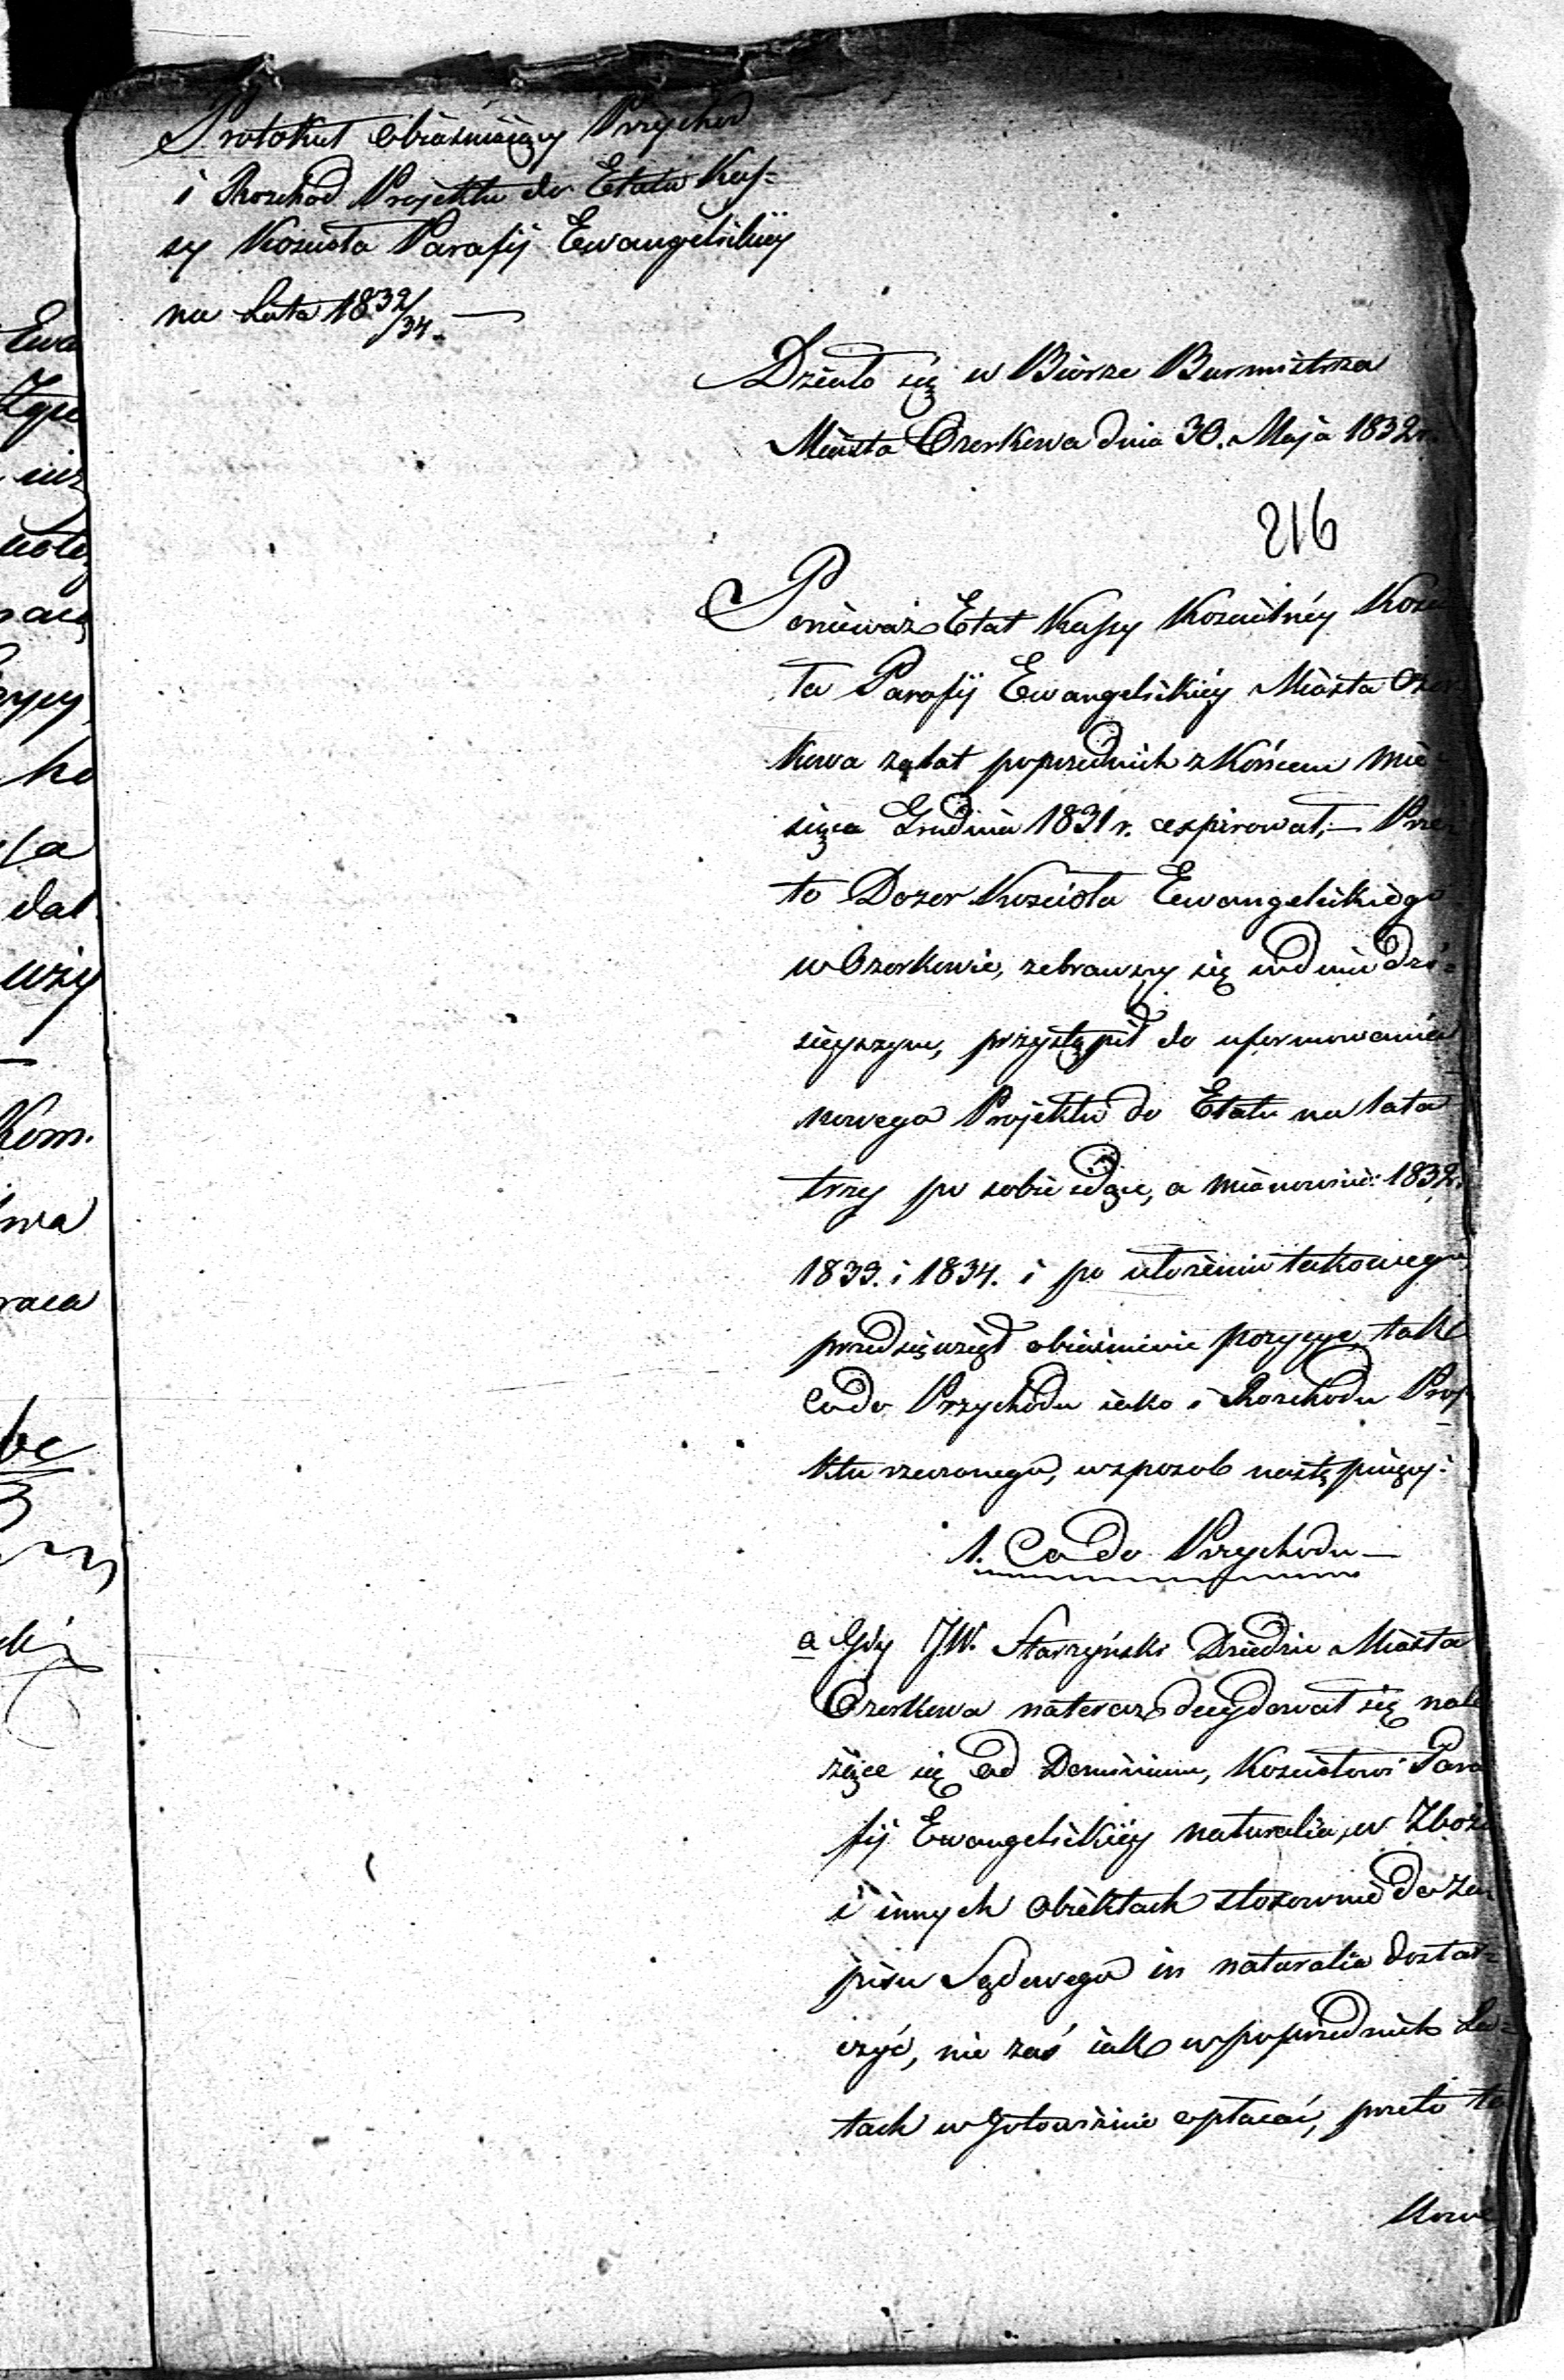 Protokuł obiaśniaiący Przychod
i Rozchod Projektu do Etatu Kas-
sy Kościoła Parafij Ewangelickiey
na Lata 1832/34. —
Działo się w Biorze Burmistrza
Miasta Ozorkowa dnia 30. Maja 1832 r.
216
Ponieważ Etat Kassy Kościelnéy Kości
ła Parafij Ewangelickiéy Miasta Ozor
kowa z lat poprzednich z Końcem mie-
siąca Grudnia 1831 r. exspirował, — Prze
to Dozor Kościoła Ewangelickiego
w Ozorkowie, zebrawszy się w dniu dzi-
sieyszym, przystąpił do uformowania
nowego Projektu do Etatu na lata
trzy po sobie idące, a mianowicie: 1832.
1833. i 1834. i po ułożeniu takowego
przedsięwziął obiaśnienie pozycye, tak
co do Przychodu iako i Rozchodu Proj
ktu rzeczonego, w sposob następuiący:
1. Co do Przychodu —
a Gdy JW. Starzyński Dziedzic Miasta
Ozorkowa na teraz decydował się nale
żące się od Dominium, Kościołowi Para
fij Ewangelickiéy naturalia, w Zbożu
i innych obiektach stosownie do za
pisu Sądowego in naturalia dostar-
czyć, nie zaś iak w poprzednich La-
tach w Gotowiźnie opłacać, przeto ta
kowe
Ewa
ho
dal
wży
Kom.
wa
raca